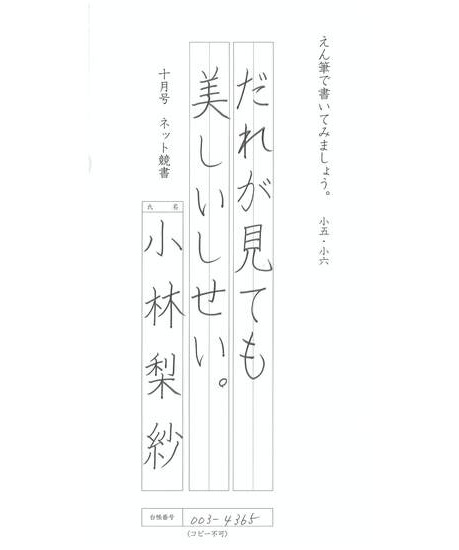 えん筆で書いてみましょう。 小五・小六
だれが見ても
美しいしせい。
十月号 ネット競書
氏名
小林梨紗
台帳番号 003-4365
(コピー不可)